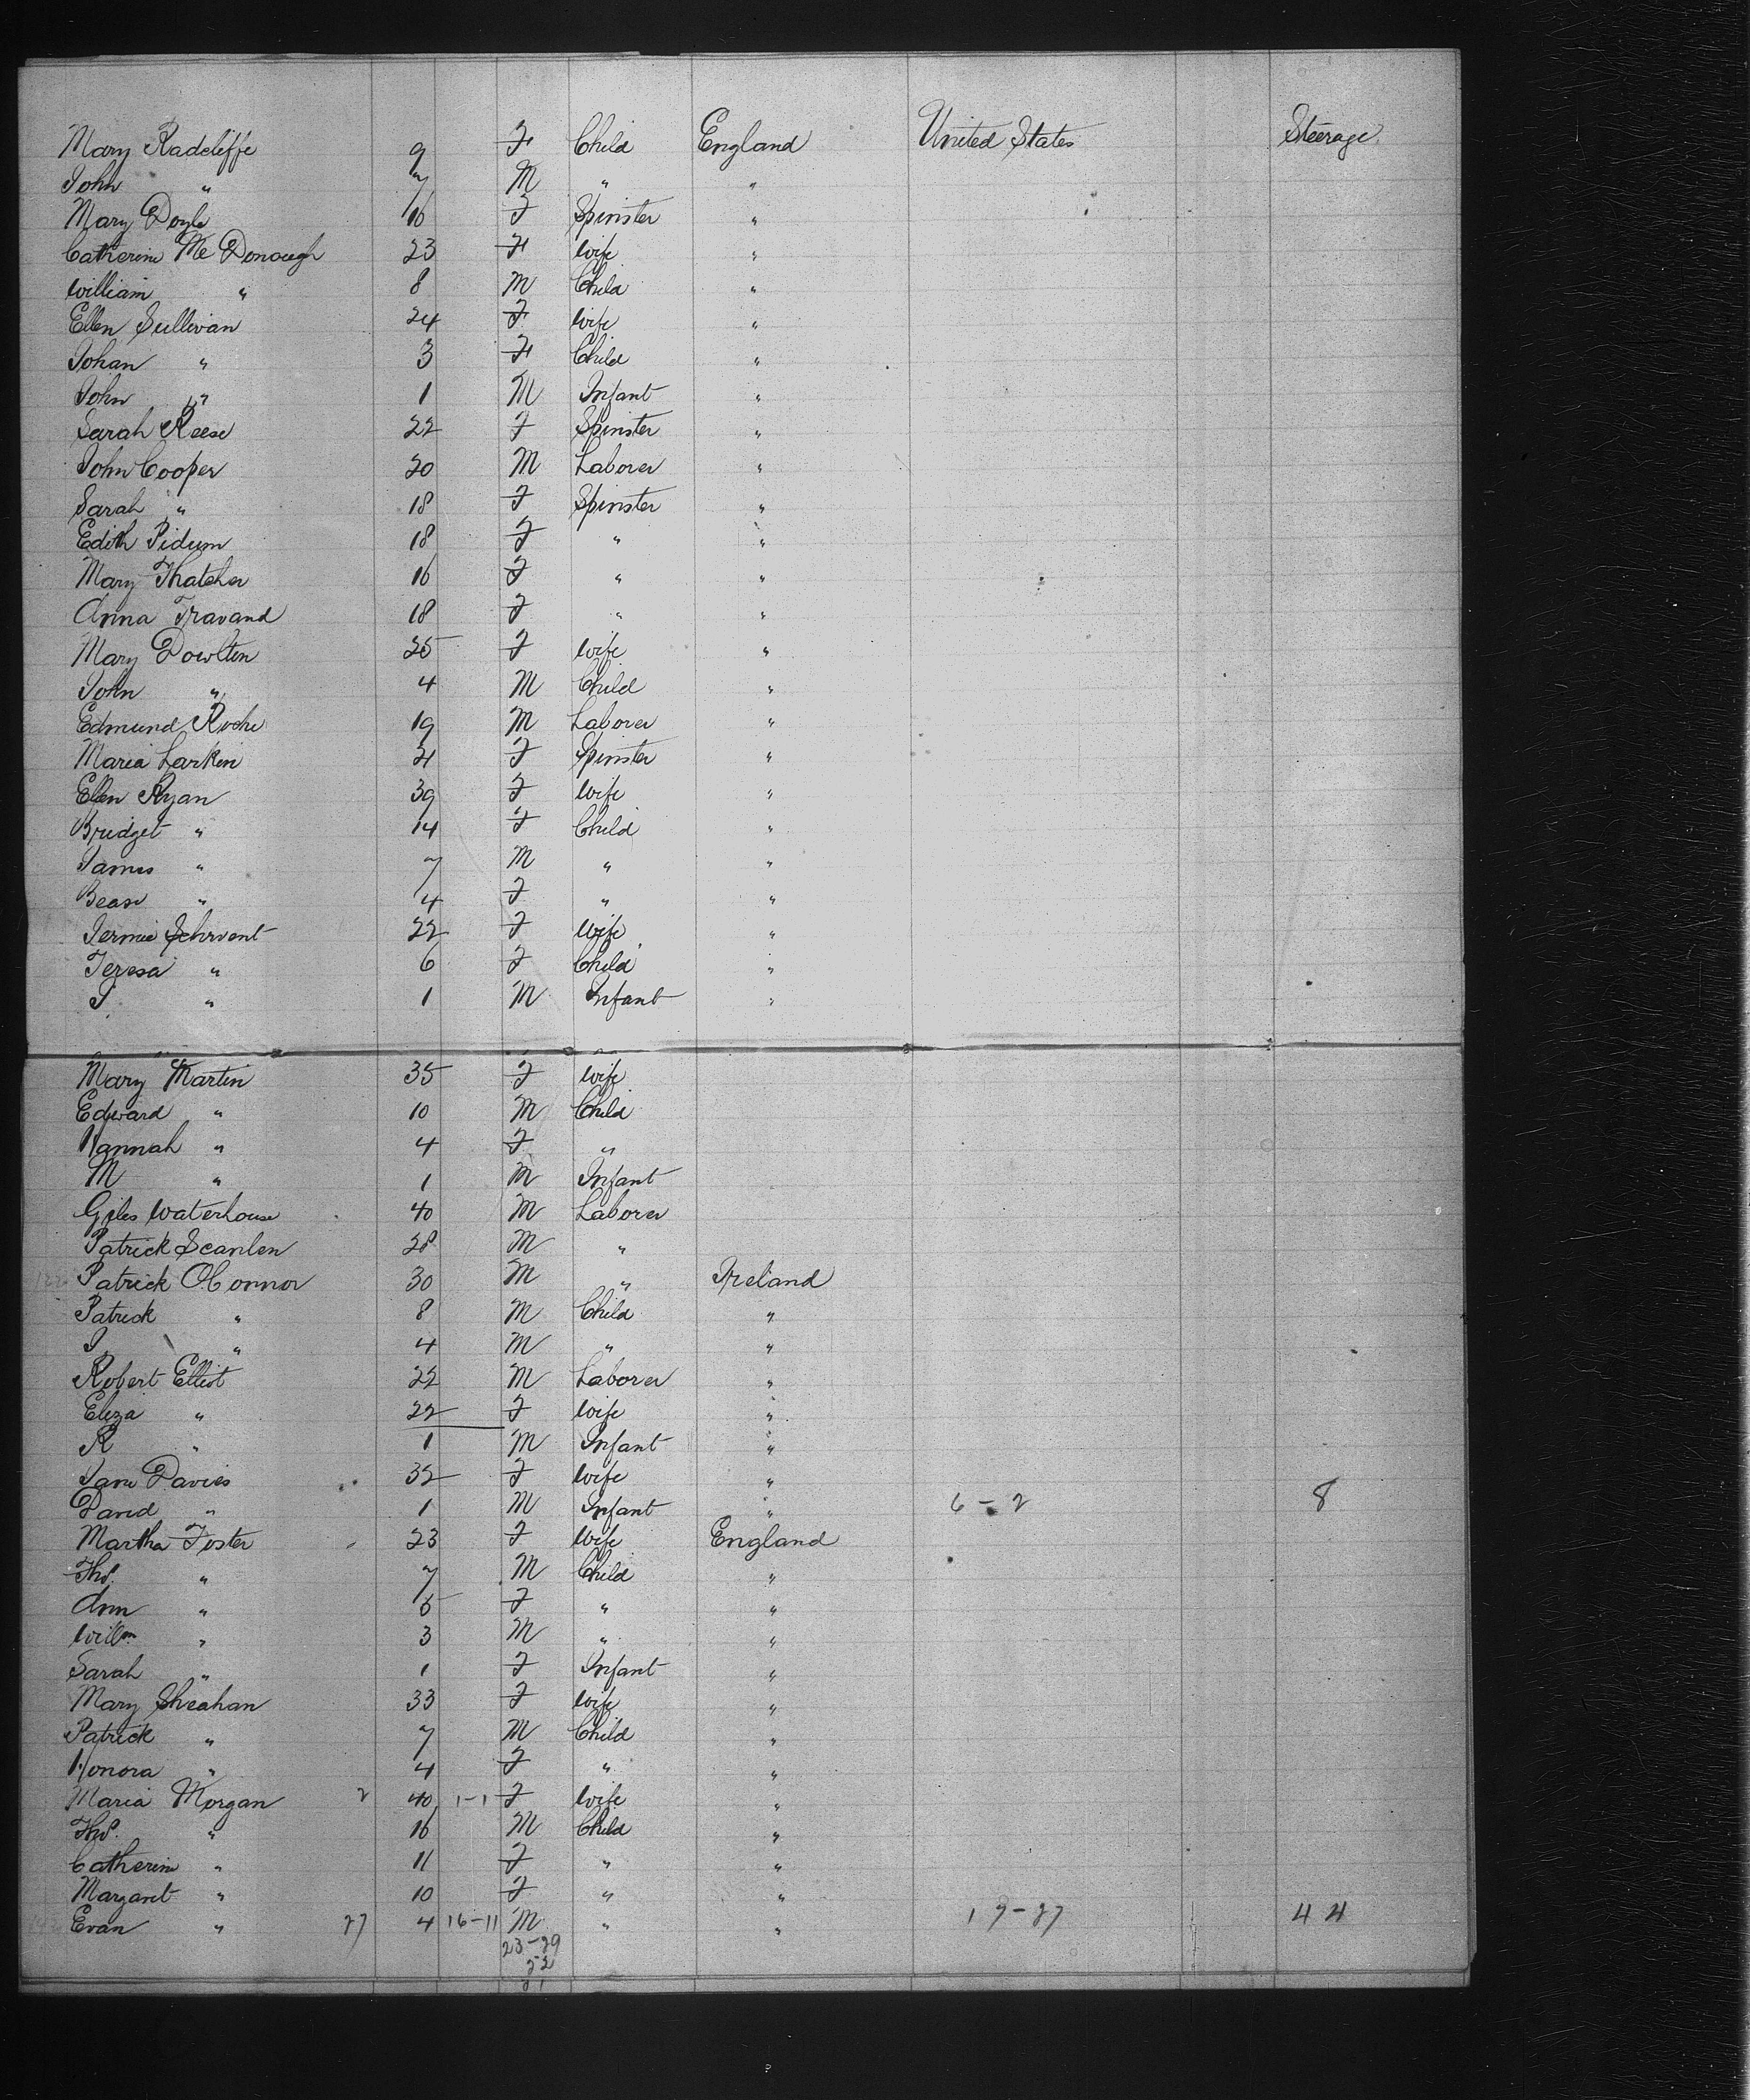 Mary Radcliffe 9 F Child England United States Steerage
John " 7 M " "
Mary Doyle 16 F Spinster "
Catherine McDonough 23 F Wife "
William " 8 M Child "
Ellen Sullivan 24 F Wife "
Johan " 3 F Child "
John " 1 M Infant "
Sarah Reese 22 F Spinster "
John Cooper 20 M Laborer "
Sarah " 18 F Spinster "
Edith Pidum 18 F " "
Mary Thatcher 16 F " "
Anna Travand 18 F " "
Mary Dowlton 25 F Wife "
John " 4 M Child "
Edmund Roche 19 M Laborer "
Maria Larkin 21 F Spinster "
Ellen Ryan 39 F Wife "
Bridget " 14 F Child "
James " 7 M " "
" 4 F " "
22 F Wife "
Teresa " 6 F Child "
J " 1 M Infant "
Mary Martin 35 F Wife
Edward " 10 M Child
Hannah " 4 F "
M " 1 M Infant
Giles Waterhouse 40 M Laborer
Patrick Scanlen 28 M "
Patrick O'Connor 30 M " Ireland
Patrick " 8 M Child "
J " 4 M " "
Robert Elliot 22 M Laborer "
Eliza " 22 F Wife "
R " 1 M Infant "
Jane Davies 32 F Wife "
David " 1 M Infant " 6-2 8
Martha Foster 23 F Wife England
Thos. " 7 M Child "
Ann " 5 F " "
Willm. " 3 M " "
Sarah " 1 F Infant "
Mary Sheahan 33 F Wife "
Patrick " 7 M Child "
Honora " 4 F " "
Maria Morgan 2 40 1-1 F Wife "
Thos. " 16 M Child "
Catherine " 11 F " "
Margaret " 10 F " "
Evan " 27 4 16-11 M " " 17-27 44
23-29